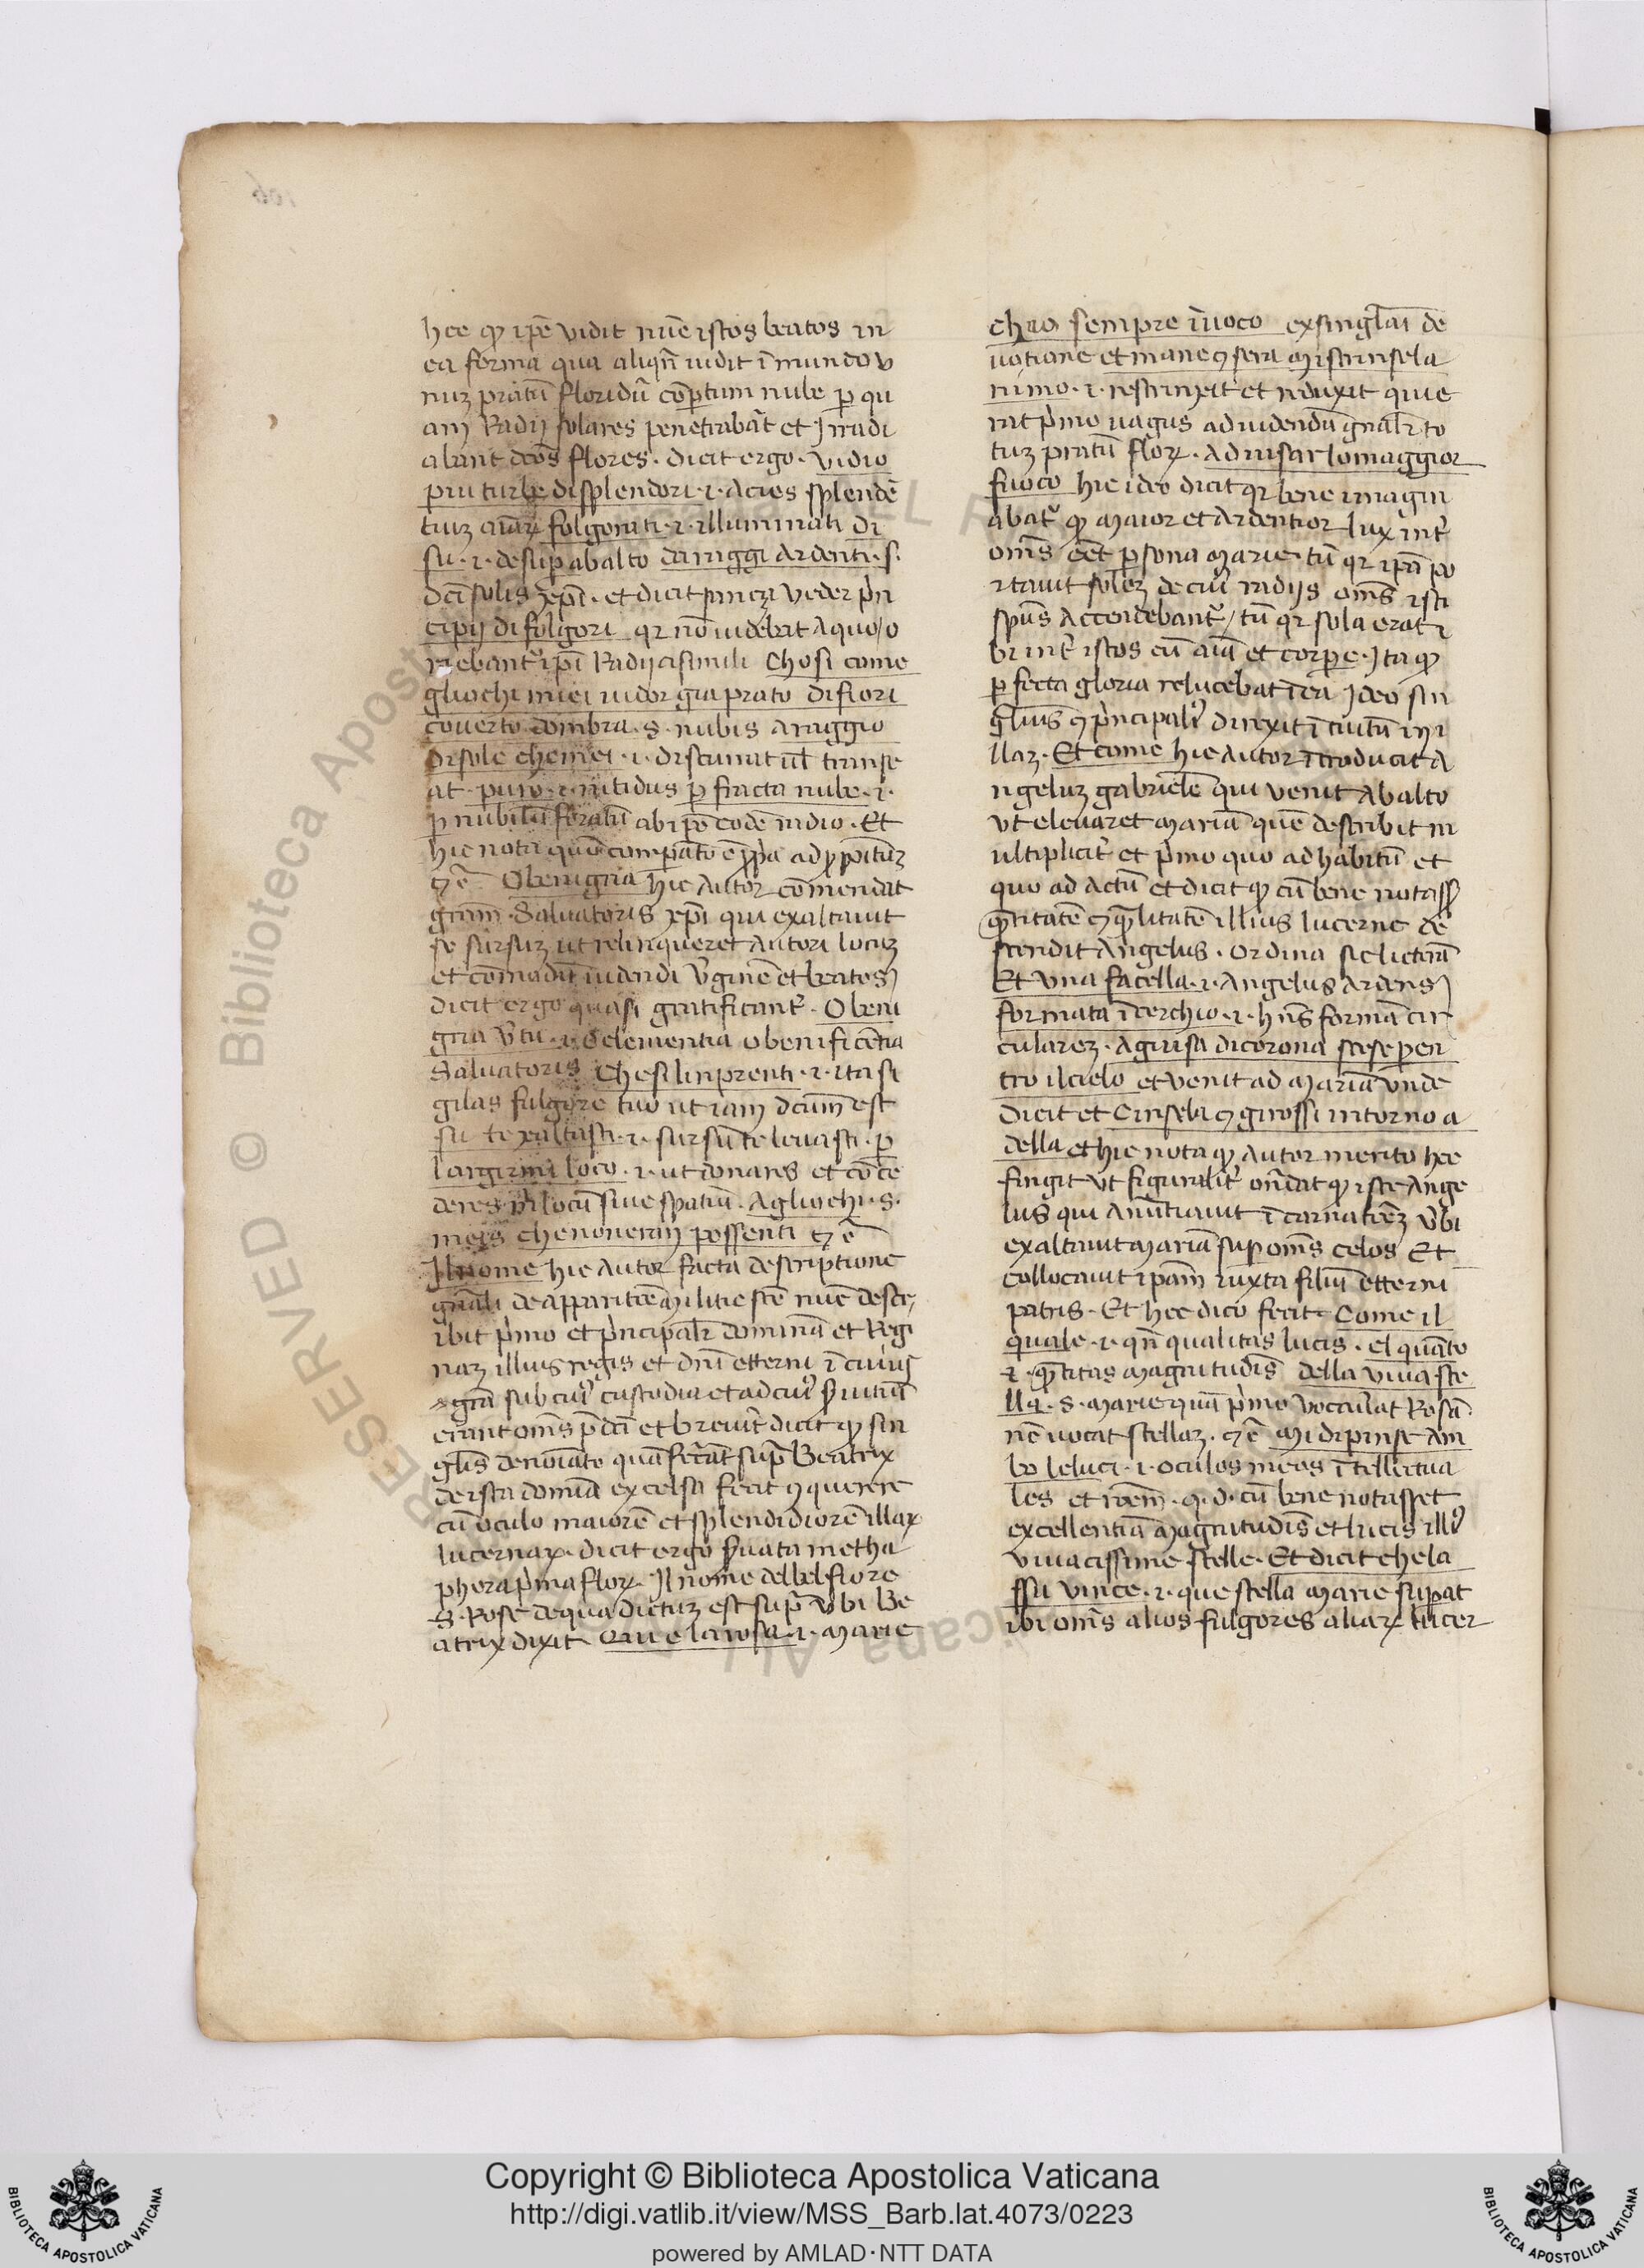 hec ꝙ ipē vidit nūc istos beatos in
ea forma qua aliqn̄ uidit ī mundo v
nuz pratū floridū coꝑtum nube ꝑ qu
am Radij solares penetrabāt et Jrradi
abant dcōs flores . dicit ergo . vidio
piu turbe di splendori .i. acies splendē
tuz aīaꝝ folgorati .i. illuminati di
su .i. desuꝑ ab alto da raggi ardenti . s.
dcī solis xp̄i . et dicit sanza veder pⁱn
cipij di folgori qꝛ nō uidebat a quo / o
riebant᷑ ip̄i Radij a simili Chosi come
gliochi miei uidor gia prato di fiori
coverto dombra . s. nubis a raggio
di sole che mei .i. discurrat ul̄ transe
at . puro .i. nitidus ꝑ fracta nube .i.
ꝑ nubilū foratū ab ipō eodē radio . Et
hic nota quō comparatō ē ꝓpⁱa ad ꝓpoitūz
⁊c̄ O benigna hic Autor comendat
gram̄ . Salvatoris xp̄i qui exaltavit
se sursuz ut relinqueret Autori locuz
et comoditātē uidendi vgⁱnē et beatos
dicit ergo quasi gratificant᷑ . O beni
gna vtu .i. o clementia o benificētia
Salvatoris che si linprenti .i. ita si
gilas fulgore tuo ut iam dcūm est
su te xaltasti .i. sursū te levasti . ꝑ
largirmi loco .i. ut donares et cōce
deres mⁱ locū sive spatiū . Agliochi . s.
meis che noneran possenti ⁊c̄
Il nome hic Autor facta descriptione
gnāli de apparitiōe militie scē nūc descr
ibit pⁱmo et pⁱncipalr̄ dominā et Regi
naz illius regis et dnī etterni ī cuius
gr̄a sub cuiꝰ custodia et ad cuiꝰ ẜvitiū
erant oms̄ pdcī et brevit᷑ dicit ꝙ sin
gl̄is denōiatō quā fecāt supᵃ Beatrix
de ista domīa excelsa fecit ꝯquerere
cū oculo maiorē et splendidiorē illaꝝ
lucernaꝝ . dicit ergo ẜvata metha
phora pⁱma floꝝ . Il nome del bel fiore
s. Rose de qua dictuz est supᵃ vbi Be
atrix dixit Qui e la rosa .i. Marie
chio sempre invoco ex singl̄ai de
votione et mane ꝯ sera mi strinse la
nimo .i. restrinxit et reduxit qui e
rat pⁱmo vagus ad uidendū gnāl̄r to
tuz pratū floꝝ . Ad auisar lo maggior
fuoco hic ideo dicit qꝛ bene imagin
abat᷑ ꝙ maior et Ardentior lux int᷑
oms̄ eēt ꝑsona Marie . tū qꝛ ipā po
rtavit solēz de cuiꝰ radijs oms̄ isti
spūs Accendebant᷑ / tū qꝛ sola erat i
bi int᷑ istos cū aīa et corꝑe . Ita ꝙ
ꝑfecta gloria relucebat ī ea Ideo sin
gl̄ius ꝯ pⁱncipaliꝰ direxit ītuitū in i
llaz . Et come hic Autor ītroducit A
ngeluz gabrielē qui venit Ab alto
vt elevaret Mariā quē describit m
ultiplicit᷑ et pⁱmo quo ad habitū et
quo ad actū et dicit ꝙ cū bene notass₃
ꝗntitatē ꝯ ꝗlitatē illius lucerne de
scendit Angelus . ordina sic literā
Et una facella .i. Angelus Ardens
formata ī cerchio .i. hn̄s formā cir
cularez . Aguisa di corona scese ꝑ en
tro il cielo et venit ad Mariā vnde
dicit et Cinsela ꝯ girossi intorno a
della et hic nota ꝙ Autor merito hec
fingit vt figuralit᷑ on̄dat ꝙ iste Ange
lus qui Anūtiavit īcarnatiōez v̄bi
exaltavit Mariā suꝑ oms̄ celos Et
collocavit ipam̄ iuxta filiū etterni
patris . Et hec dico fecit Come il
quale .i. qn̄ qualitas lucis . el quāto
.i. ꝗntitas magnitudis̄ della viva ste
lla . s. Marie quā pⁱmo voccavat Rosā
nc̄ vocat stellaz . ⁊c̄ Mi dipinse Am
bo le luci .i. oculos meos ītellectua
les et rōem̄ . q. d. cū bene notasset
excellentiā Magnitudis̄ et lucis illiꝰ
vivacissime stelle . Et dicit che la
ssu vince .i. que stella Marie suꝑat
ibi oms̄ alios fulgores aliaꝝ lucer
Copyright © Biblioteca Apostolica Vaticana
http://digi.vatlib.it/view/MSS_Barb.lat.4073/0223
powered by AMLAD·NTT DATA